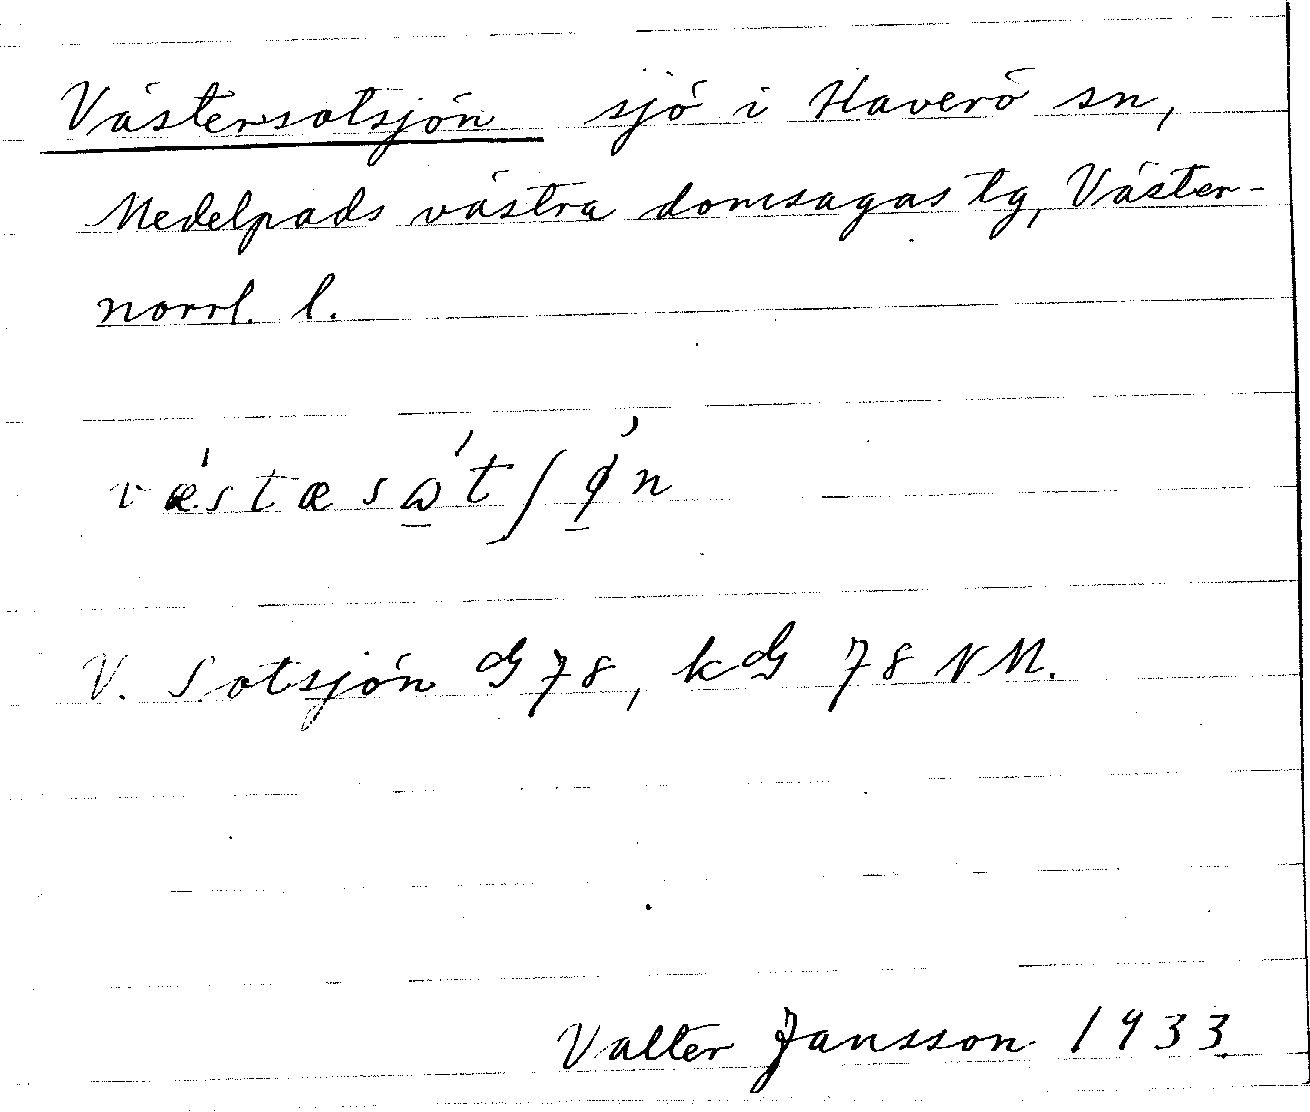 Västersotsjön sjö i Haverö sn,
Medelpads västra domsagas tg, Väster-
norrl. l.
væ̀stæsὼ̱tʃø̱̀n
V. Sotsjön G 78, kG 78 NM.
Valter Jansson 1933